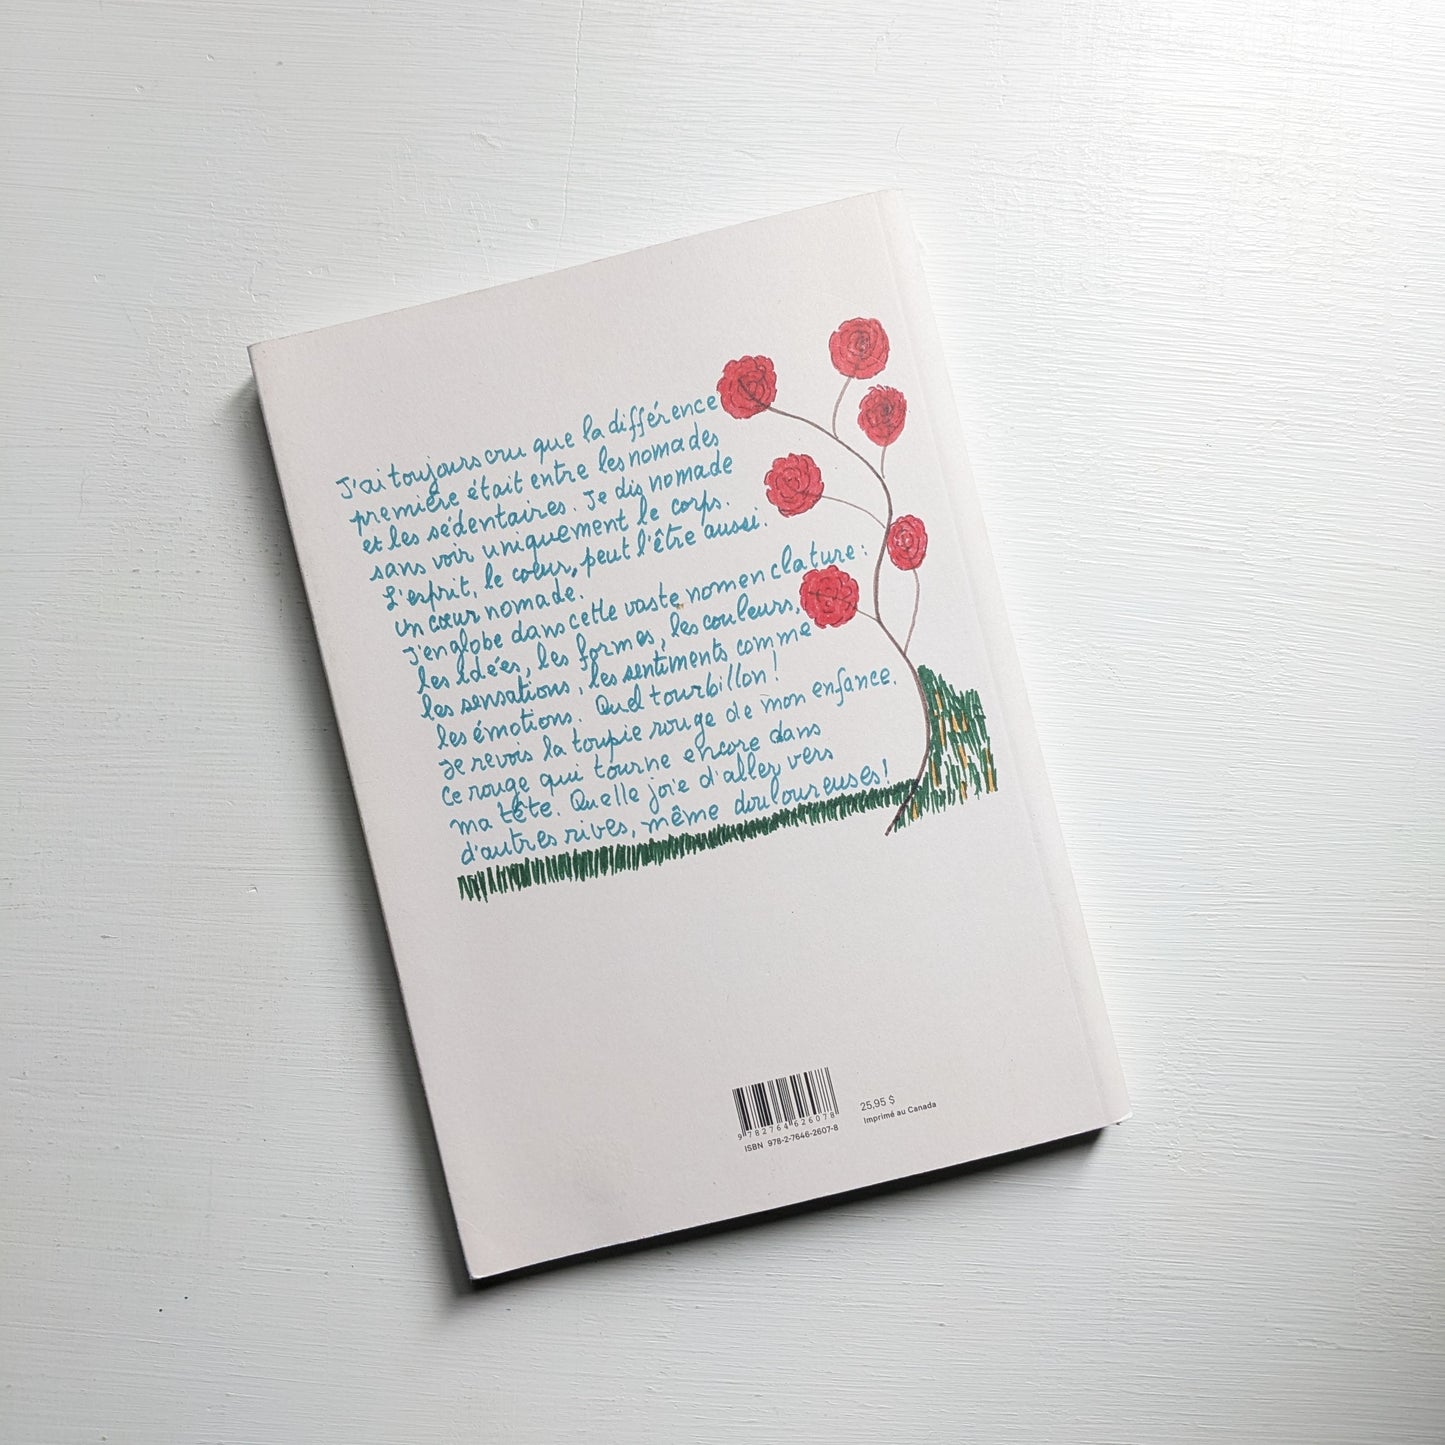 J'ai toujours cru que la différence
première était entre les nomades
et les sédentaires. Je dis nomade
sans voir uniquement le corps.
L'esprit, le cœur, peut l'être aussi.
un cœur nomade.
J'englobe dans cette vaste nomenclature :
les idées, les formes, les couleurs,
les sensations, les sentiments comme
les émotions. Quel tourbillon !
Je revois la toupie rouge de mon enfance.
Ce rouge qui tourne encore dans
ma tête. Quelle joie d'aller vers
d'autres rives, même douloureuses !
9 782764 626078
ISBN 978-2-7646-2607-8
25,95 $
Imprimé au Canada